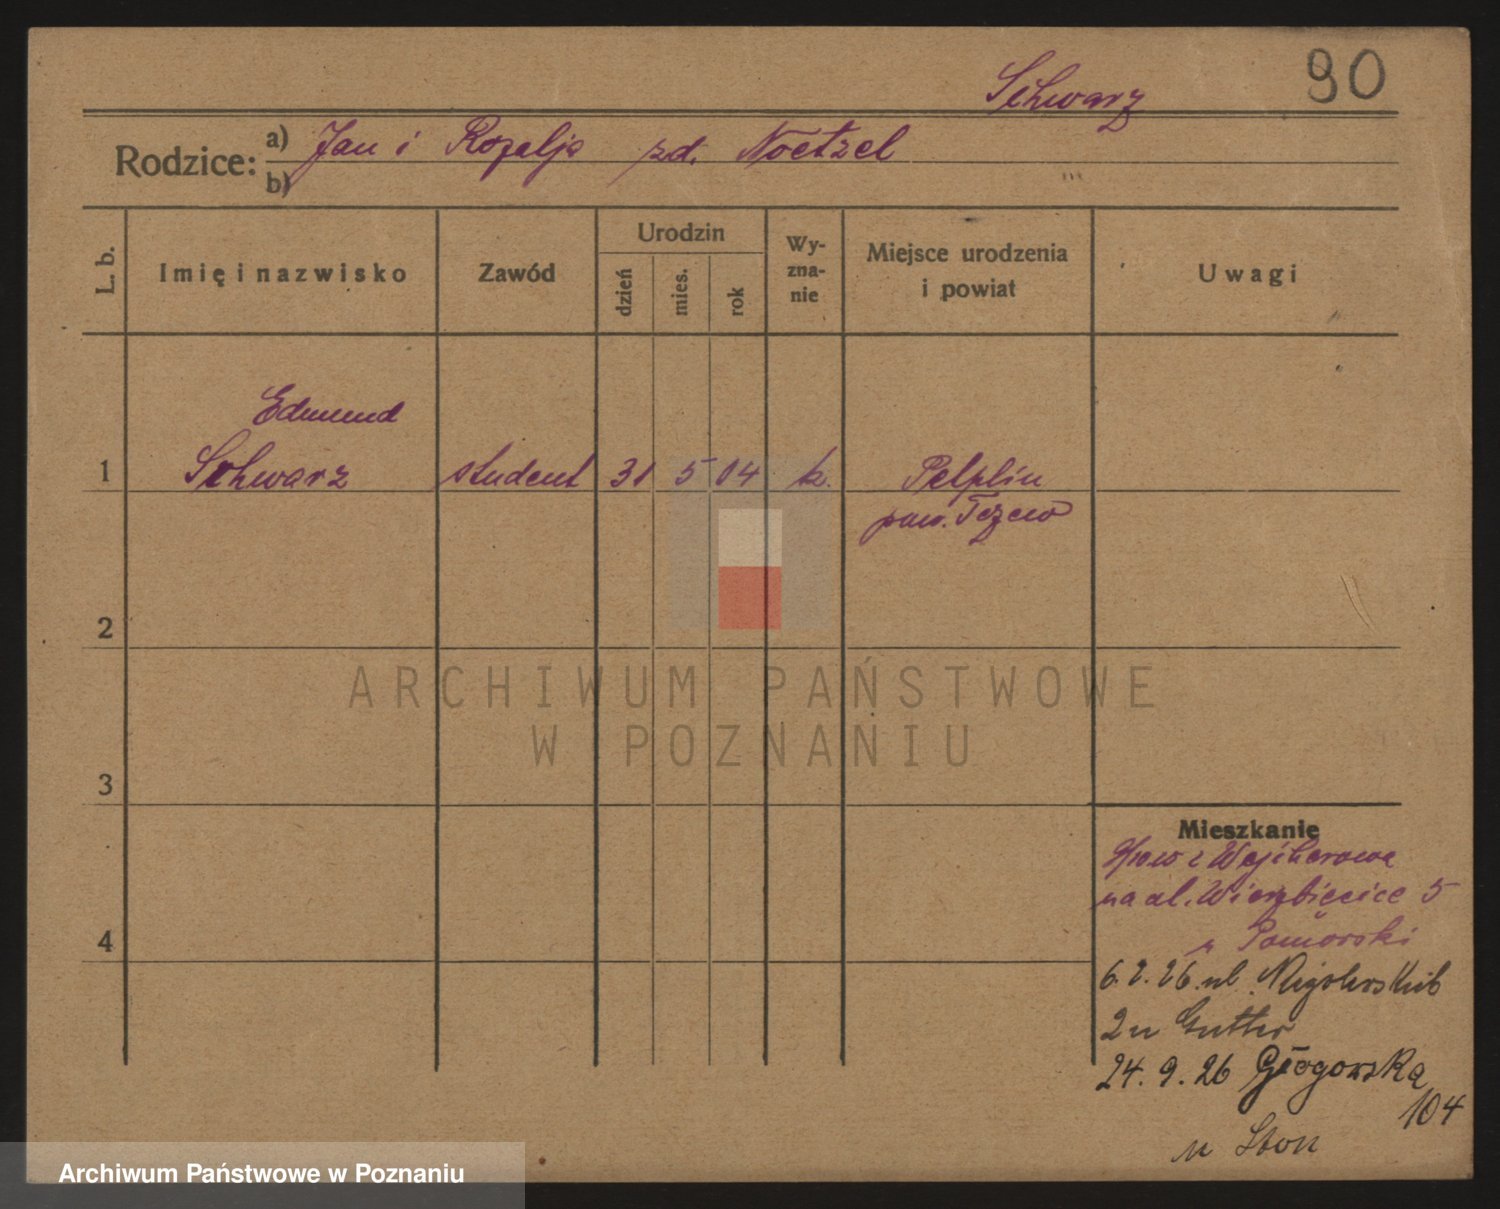 90
Schwarz
Rodzice: a) Jan i Rozalja zd. Noetzel
b)
L. b.
Imię i nazwisko
Zawód
Urodzin
dzień
mies.
rok
Wy-
zna-
nie
Miejsce urodzenia
i powiat
Uwagi
Edmund
1 Schwarz student 31 5 04 k. Pelplin
pow. Tczew
2
ARCHIWUM PAŃSTWOWE
W POZNANIU
3
Mieszkanie
z Wejherowa
na ul. Wierzbięcice 5
Pomorski
4
6. 2. 26 ul.
2 u
24. 9. 26 Głogowska
104
u
Archiwum Państwowe w Poznaniu